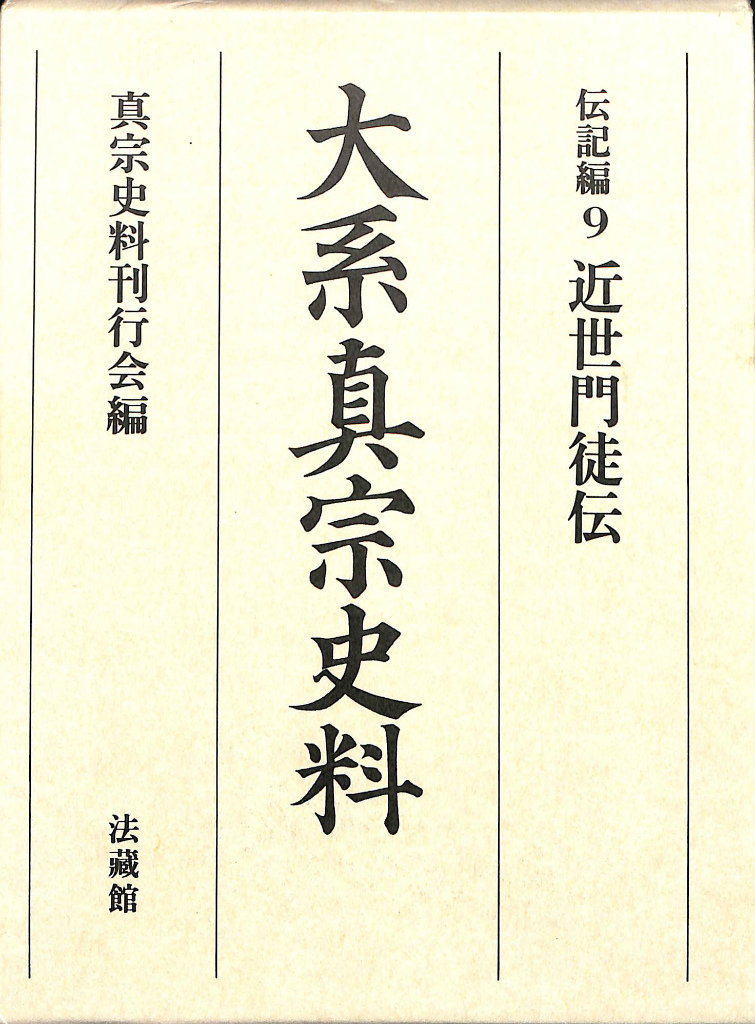 伝記編9 近世門徒伝
大系真宗史料
真宗史料刊行会編
法藏館